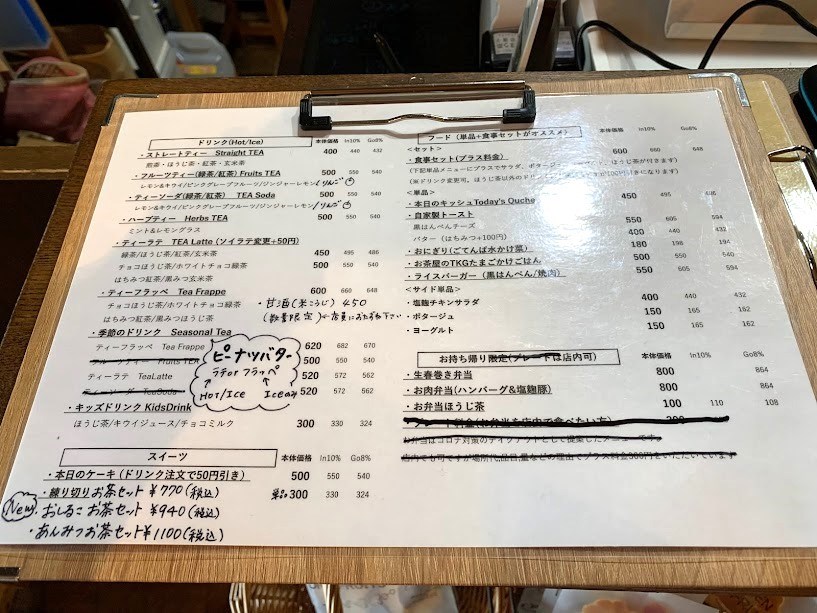 ドリンク(Hot/Ice) 本体価格 In10% Go8%
・ストレートティー Straight TEA 400 440 432
煎茶・ほうじ茶・紅茶・玄米茶
・フルーツティー(緑茶/紅茶) Fruits TEA 500 550 540
レモン&キウイ/ピンクグレープフルーツ/ジンジャーレモン/りんご
・ティーソーダ(緑茶/紅茶) TEA Soda 500 550 540
レモン&キウイ/ピンクグレープフルーツ/ジンジャーレモン/りんご
・ハーブティー Herbs TEA 500 550 540
ミント&レモングラス
・ティーラテ TEA Latte (ソイラテ変更+50円)
緑茶/ほうじ茶/紅茶/玄米茶 450 495 486
チョコほうじ茶/ホワイトチョコ緑茶 500 550 540
はちみつ紅茶/黒みつ玄米茶
・ティーフラッペ Tea Frappe 600 660 648
チョコほうじ茶/ホワイトチョコ緑茶
はちみつ紅茶/黒みつほうじ茶
・甘酒(米こうじ) 450
(数量限定)←店員におたずね下さい
・季節のドリンク Seasonal Tea
ティーフラッペ Tea Frappe 620 682 670
フルーツティー Fruits TEA 500 550 540
ティーラテ TeaLatte 520 572 562
ティーソーダ TeaSoda 520 572 562
ピーナツバター
ラテ or フラッペ
HOT/ICE Iceのみ
・キッズドリンク KidsDrink
ほうじ茶/キウイジュース/チョコミルク 300 330 324
スイーツ 本体価格 In10% Go8%
・本日のケーキ (ドリンク注文で50円引き) 500 550 540
・練り切りお茶セット ¥770(税込) 単品 300 330 324
New
・おしるこお茶セット ¥940(税込)
・あんみつお茶セット ¥1100(税込)
フード (単品+食事セットがオススメ) 本体価格 In10% Go8%
<セット>
・食事セット(プラス料金) 600 660 648
(下記単品メニューにプラスでサラダ、ポタージュ ほうじ茶が付きます)
(※ドリンク変更可。ほうじ茶以外の 100円引きになります)
<単品>
・本日のキッシュToday's Quche 450 495 486
・自家製トースト
黒はんぺんチーズ 550 605 594
バター (はちみつ+100円) 400 440 432
・おにぎり(ごてんば水かけ菜) 180 198 194
・お茶屋のTKGたまごかけごはん 500 550 540
・ライスバーガー (黒はんぺん/焼肉) 550 605 594
<サイド単品>
・塩麹チキンサラダ 400 440 432
・ポタージュ 150 165 162
・ヨーグルト 150 165 162
お持ち帰り限定(プレートは店内可) 本体価格 In10% Go8%
・生春巻き弁当 800 864
・お肉弁当(ハンバーグ&塩麹豚) 800 864
・お弁当ほうじ茶 100 110 108
・プレート料金(お弁当を店内で食べたい方) 300
お弁当はコロナ対策のテイクアウトとして提案したメニューです。
店内でも可ですが場所代、品目、量などの理由でプラス料金300円をいただいています